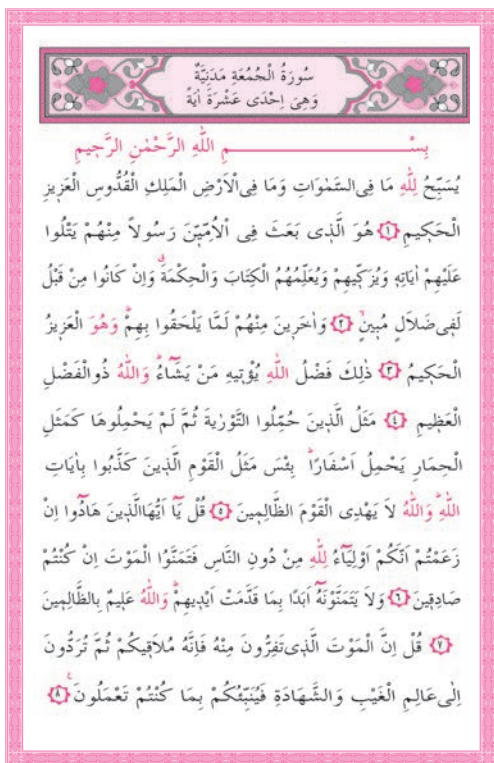 سُورَةُ الْجُمُعَةِ مَدَنِيَّةٌ
وَهِيَ اِحْدَى عَشْرَةَ اٰيَةً
بِسْــــــــــــمِ اللّٰهِ الرَّحْمٰنِ الرَّحِيمِ
يُسَبِّحُ لِلّٰهِ مَا فِى السَّمٰوَاتِ وَمَا فِى الْاَرْضِ الْمَلِكِ الْقُدُّوسِ الْعَزِيزِ
الْحَكِيمِ ﴿١﴾ هُوَ الَّذِى بَعَثَ فِى الْاُمِّيّٖنَ رَسُولاً مِنْهُمْ يَتْلُوا
عَلَيْهِمْ اٰيَاتِهٖ وَيُزَكِّيهِمْ وَيُعَلِّمُهُمُ الْكِتَابَ وَالْحِكْمَةَۗ وَاِنْ كَانُوا مِنْ قَبْلُ
لَفِى ضَلَالٍ مُبِينٍۙ ﴿٢﴾ وَاٰخَرِينَ مِنْهُمْ لَمَّا يَلْحَقُوا بِهِمْۜ وَهُوَ الْعَزِيزُ
الْحَكِيمُ ﴿٣﴾ ذٰلِكَ فَضْلُ اللّٰهِ يُؤْتِيهِ مَنْ يَشَٓاءُۜ وَاللّٰهُ ذُو الْفَضْلِ
الْعَظِيمِ ﴿٤﴾ مَثَلُ الَّذِينَ حُمِّلُوا التَّوْرٰيةَ ثُمَّ لَمْ يَحْمِلُوهَا كَمَثَلِ
الْحِمَارِ يَحْمِلُ اَسْفَارًاۜ بِئْسَ مَثَلُ الْقَوْمِ الَّذِينَ كَذَّبُوا بِاٰيَاتِ
اللّٰهِۜ وَاللّٰهُ لَا يَهْدِى الْقَوْمَ الظَّالِمِينَ ﴿٥﴾ قُلْ يَٓا اَيُّهَا الَّذِينَ هَادُٓوا اِنْ
زَعَمْتُمْ اَنَّكُمْ اَوْلِيَٓاءُ لِلّٰهِ مِنْ دُونِ النَّاسِ فَتَمَنَّوُا الْمَوْتَ اِنْ كُنْتُمْ
صَادِقِينَ ﴿٦﴾ وَلَا يَتَمَنَّوْنَهُٓ اَبَدًا بِمَا قَدَّمَتْ اَيْدِيهِمْۜ وَاللّٰهُ عَلِيمٌ بِالظَّالِمِينَ
﴿٧﴾ قُلْ اِنَّ الْمَوْتَ الَّذِى تَفِرُّونَ مِنْهُ فَاِنَّهُ مُلَاقِيكُمْ ثُمَّ تُرَدُّونَ
اِلٰى عَالِمِ الْغَيْبِ وَالشَّهَادَةِ فَيُنَبِّئُكُمْ بِمَا كُنْتُمْ تَعْمَلُونَۚ ﴿٨﴾